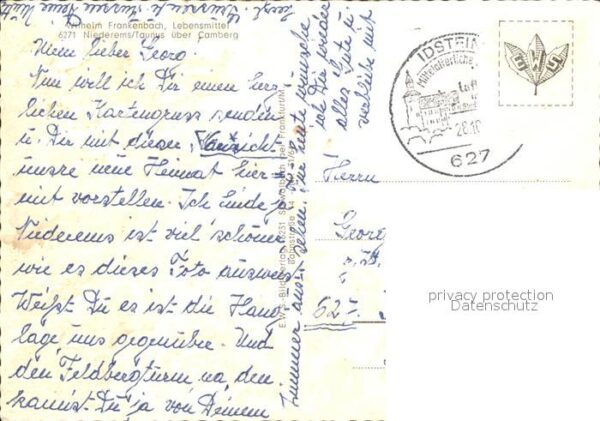 Wilhelm Frankenbach, Lebensmittel
6271 Niederems/Taunus über Camberg
Mein lieber Georg.
Nun will ich Dir einen herz
lichen Kartengruss senden
u. Dir mit dieser Ansicht
unsre neue Heimat hier=
mit vorstellen. Ich finde ja
Niederems ist viel schöner
wie es dieses Foto ausweist
Weißt Du es ist die Hang
lage uns gegenüber. Und
den Feldbergturm na den
kannst Du ja von Deinem
Zimmer aus sehen. Für heute wünsche
ich Dir wieder
alles Gute u.
verbleibe mit
Frankfurt/M.
IDSTEIN
Mittelalterliche
Luft
28.10
627
EWS
Herrn
Georg
62
privacy protection
Datenschutz